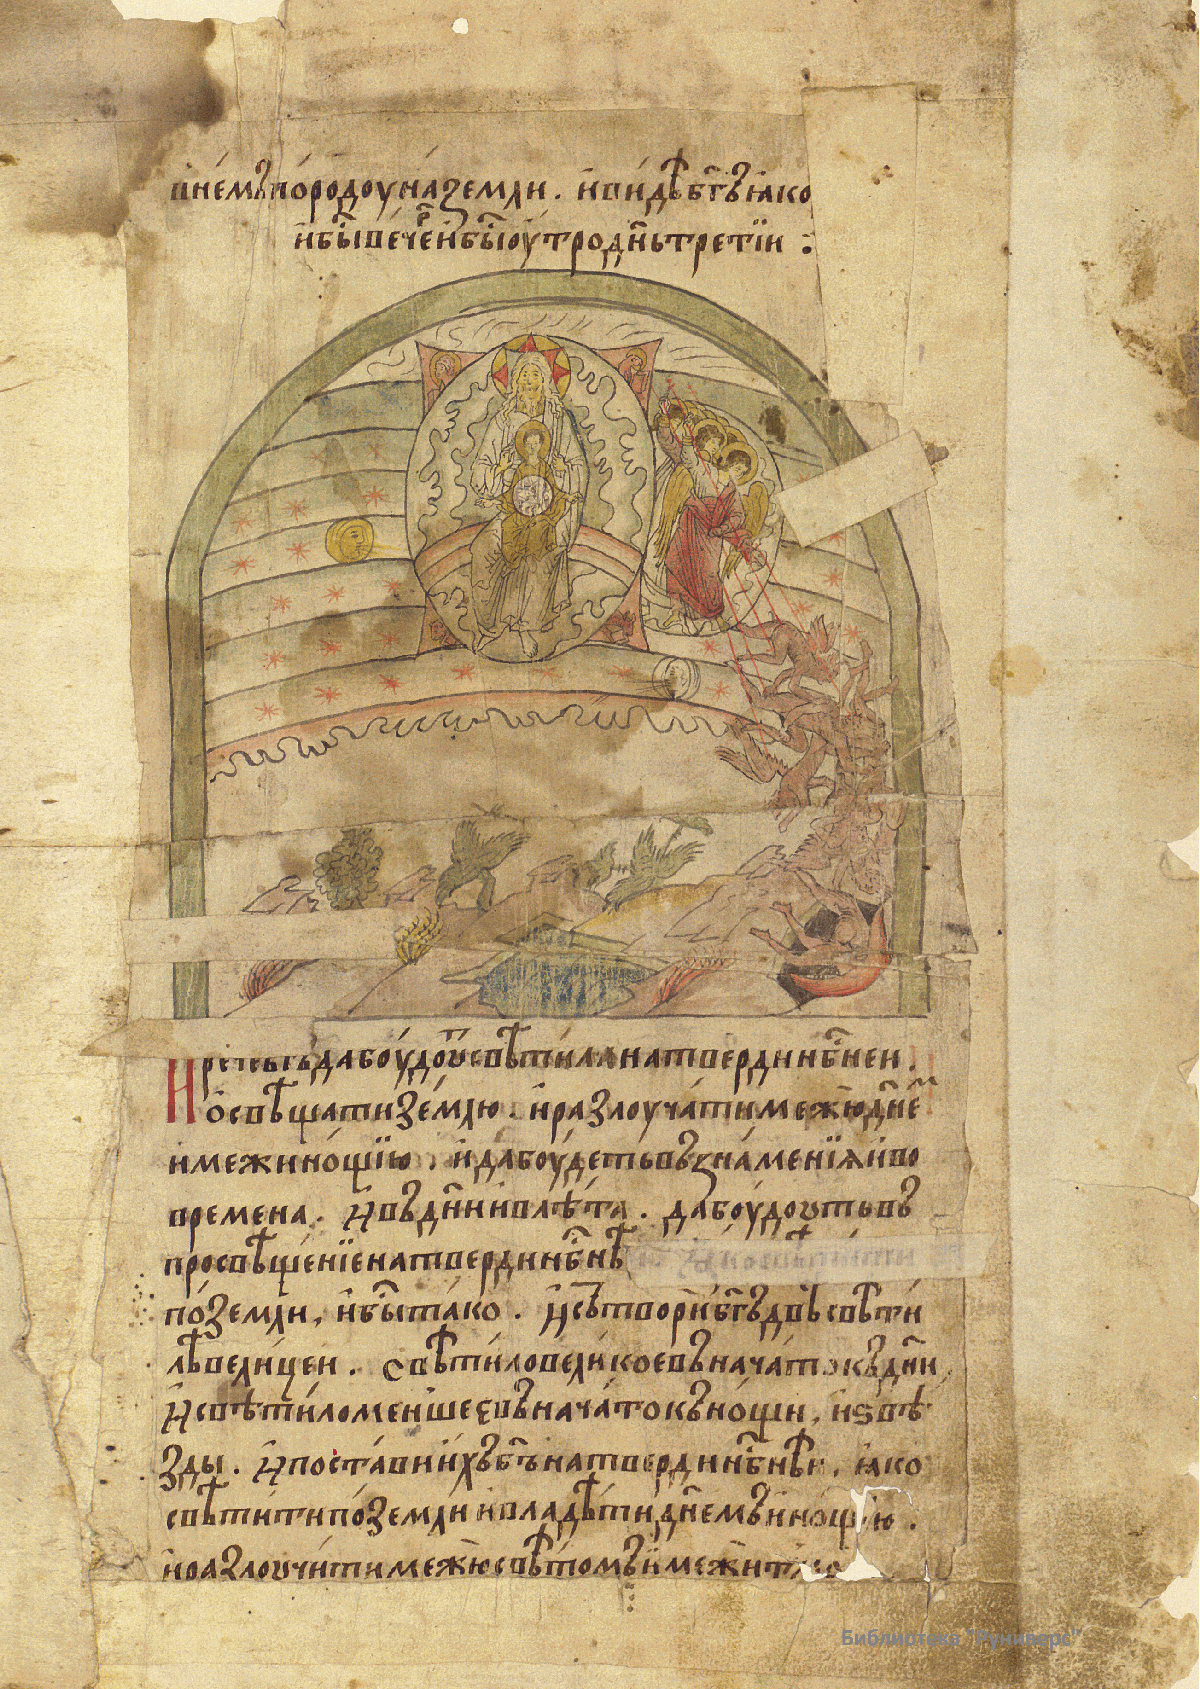 в нем въ породоу на земли . и видѣ бг҃ъ ꙗко
и бы́ вече́р и бы́ оу́тро дн҃ь третїи :
И рече бг҃ъ да боу́доу свѣтила на тверди нб҃нѣи .
ѡсвѣщати зе́млю . и разлоуча́ти межю дн҃е
и межи но́щїю . и да боу́деть въ зна́менїѧ и во
времена . И въ дн҃и и в лѣ́та . да боу́доуть въ
просвѣще́нїе на тверди нб҃нѣ
по́ земли, и бы́ та́ко . И сътвори бг҃ъ двѣ свѣти
лѣ вели́цеи . свѣти́ло вели́кое въ нача́токъ дн҃и
И свѣти́ло ме́ншеє въ нача́токъ но́щи, и ѕвѣ
зды . И поста́ви и́хъ бг҃ъ на тверди нб҃нѣи, ꙗко
свѣти́ти по́ земли и владѣ́ти дн҃емъ и но́щїю .
и разлоучи́ти межю свѣ́томъ и межи
Библиотека "Руниверс"